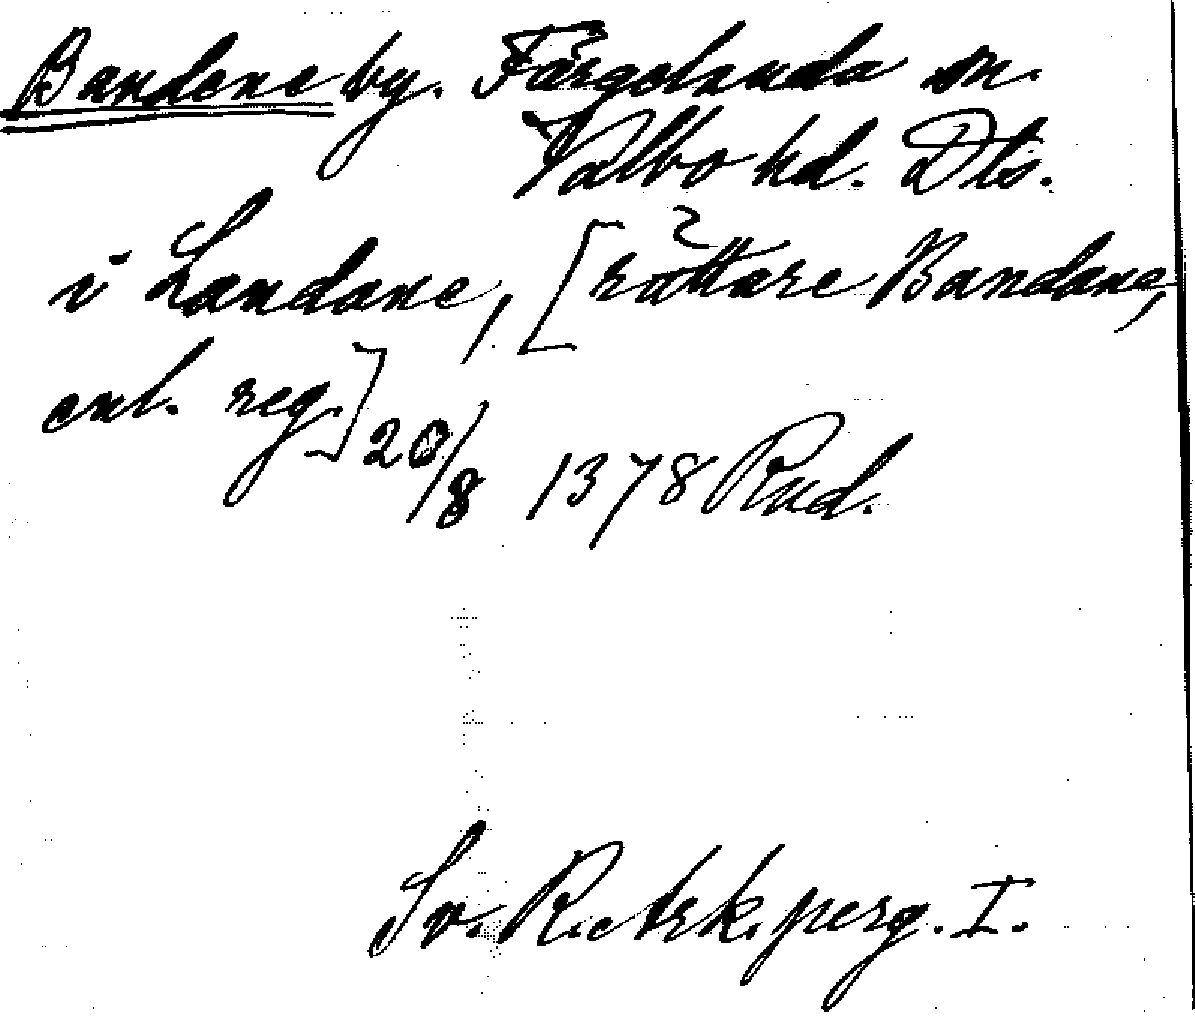 Bandene by. Färgelanda sn.
Valbo hd. Dls.
i Landane, [rättare Bandane,
enl. reg.] 20/8 1378 Rud.
Sv. R. Ark. perg. I.